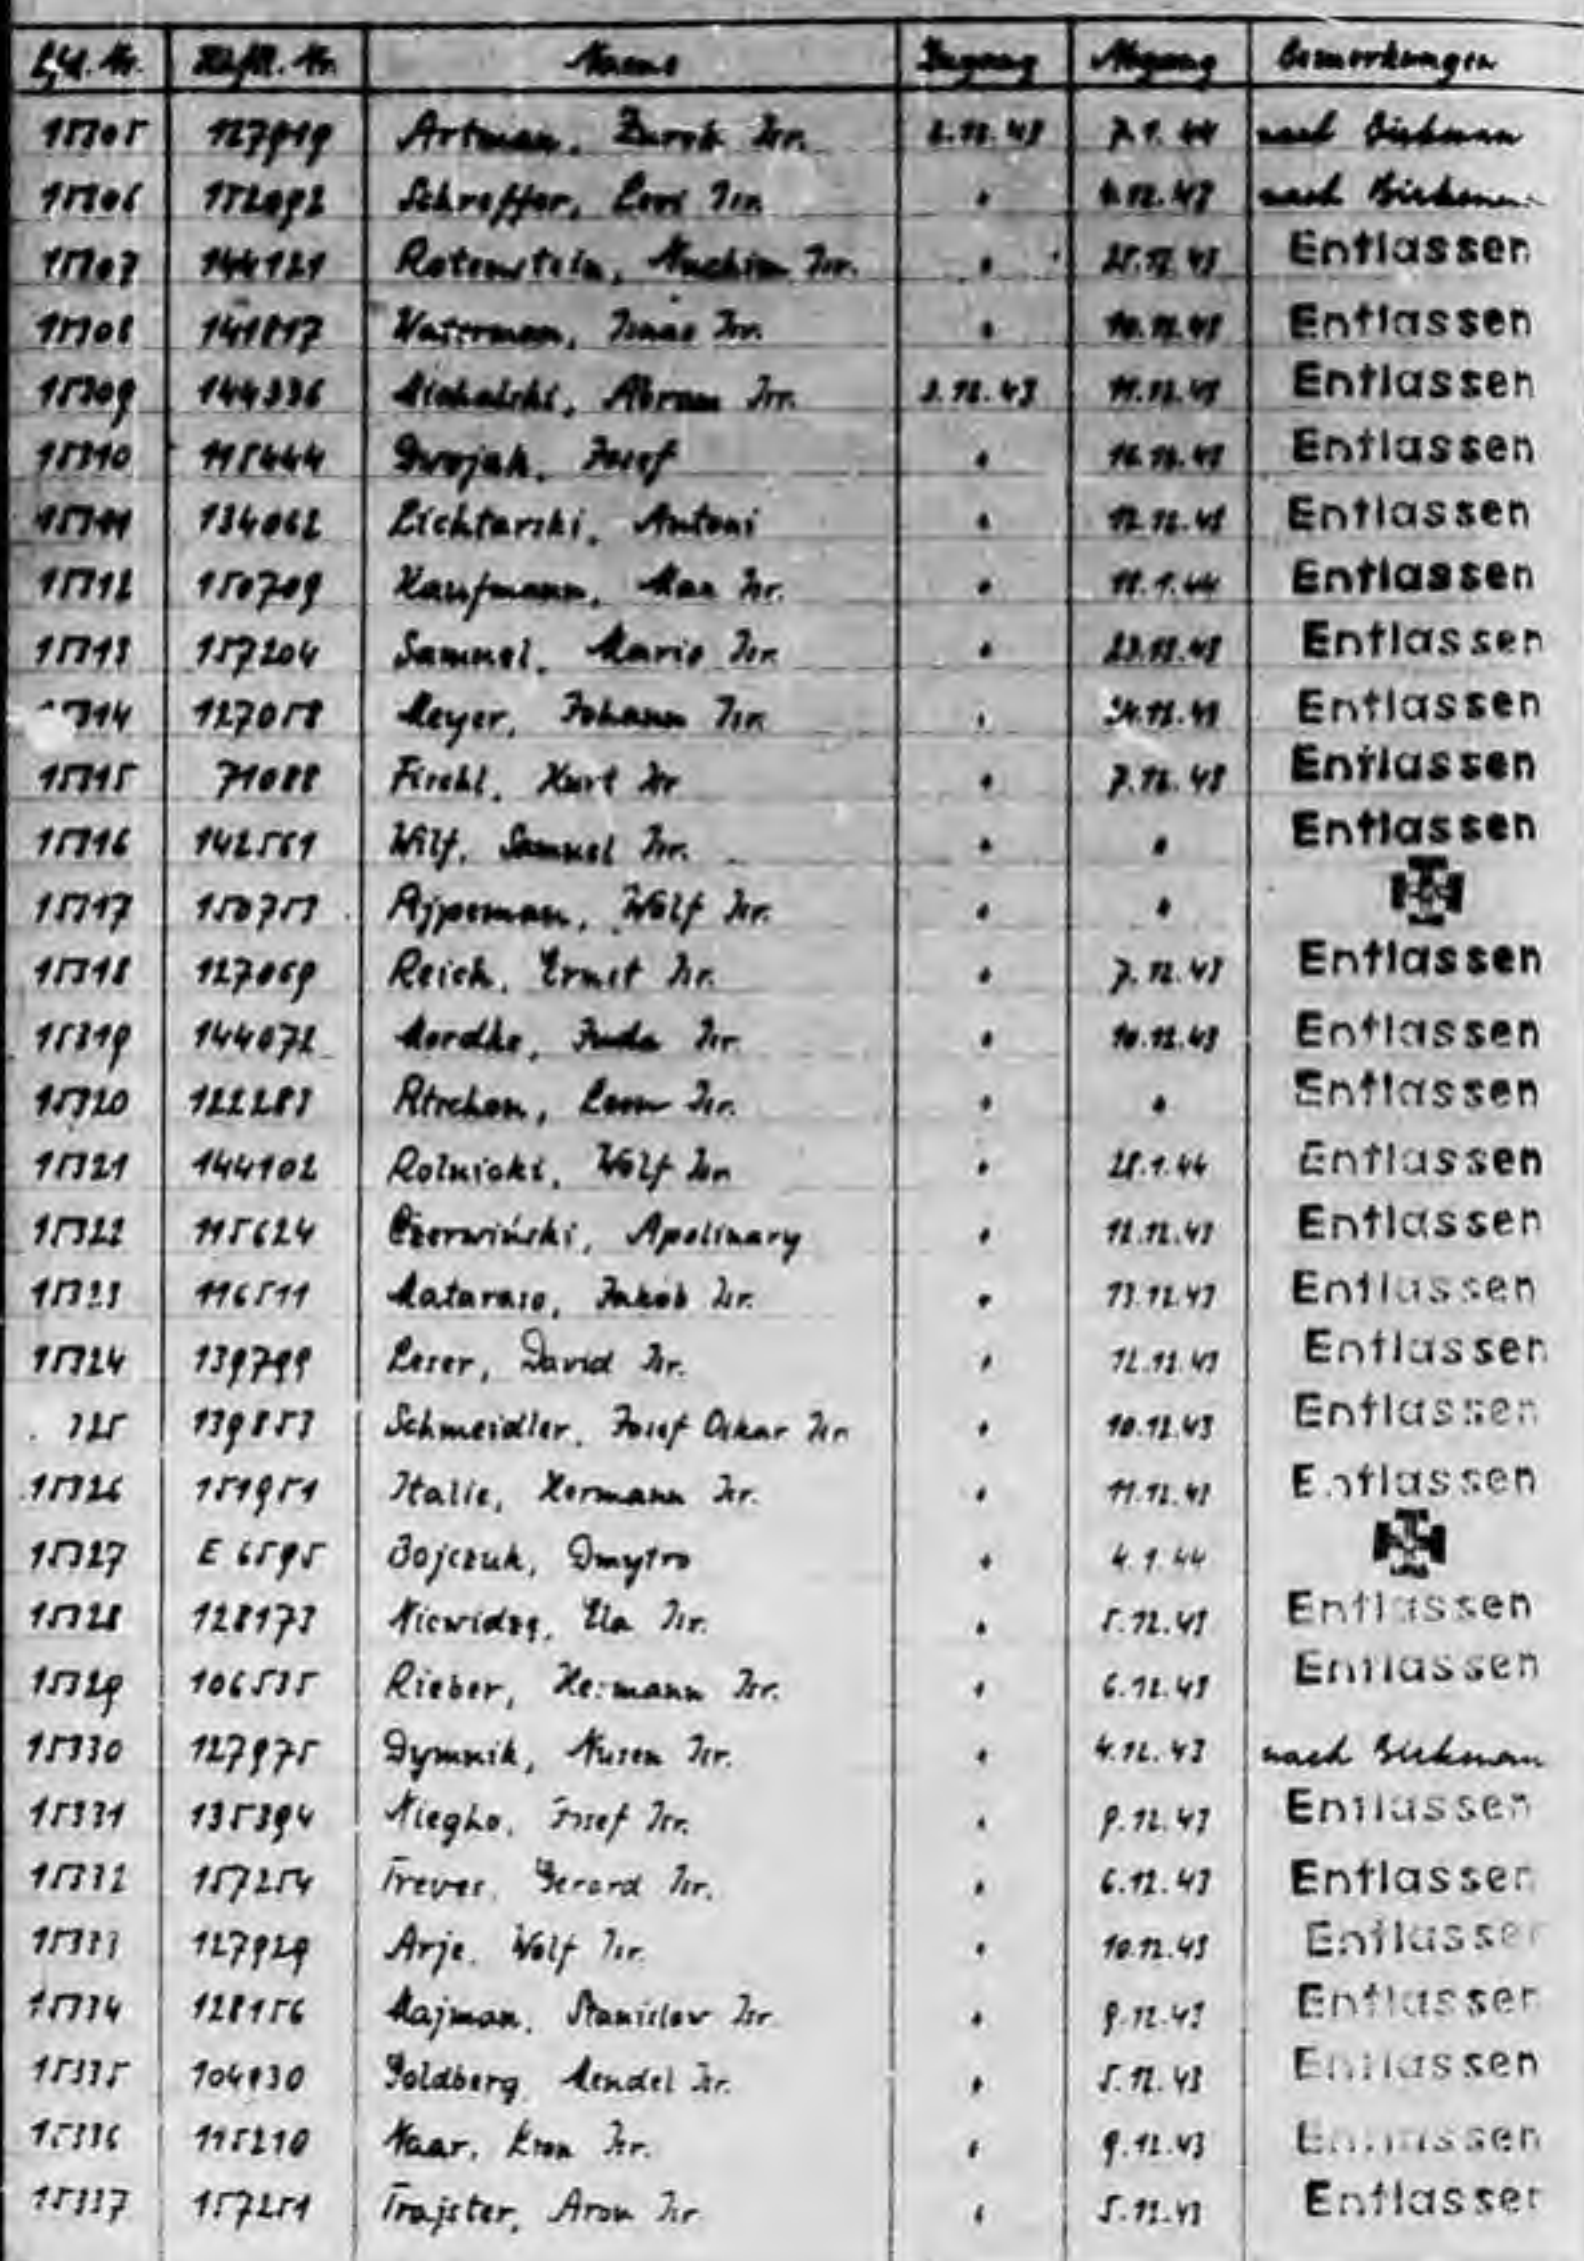 Lfd. Nr. Häftl. Nr. Name Zugang Abgang Bemerkungen
15305 127919 Artman, Isr. 2.12.43 7.1.44 nach Birkenau
15306 152092 Schreffer, Isr. " 4.12.43 nach Birkenau
15307 144121 Rotenstein, Nuchim Isr. " 25.12.43 Entlassen
15308 141817 Isaac Isr. " 10.12.43 Entlassen
15309 144336 Michalski, Abram Isr. 3.12.43 11.12.43 Entlassen
15310 115444 Dwojak, Josef " 16.12.43 Entlassen
15311 134062 Lichtarski, Antoni " 12.12.43 Entlassen
15312 150709 Kaufmann, Max Isr. " 18.1.44 Entlassen
15313 157204 Samuel, Mario Isr. " 23.12.43 Entlassen
314 127058 Meyer, Johann Isr. " 24.12.43 Entlassen
15315 71088 Kurt Isr " 7.12.43 Entlassen
15316 142561 Wilf, Samuel Isr. " " Entlassen
15317 150753 Ajpeman, Wolf Isr. " "
15318 127069 Reich, Ernst Isr. " 7.12.43 Entlassen
15319 144072 Mordke, Juda Isr. " 10.12.43 Entlassen
15320 122283 Leon Isr. " " Entlassen
15321 144102 Rolnicki, Wolf Isr. " 28.1.44 Entlassen
15322 115624 Czerwiński, Apolinary " 12.12.43 Entlassen
15323 116511 Mataraso, Jakob Isr. " 13.12.43 Entlassen
15324 139799 Leser, David Isr. " 12.12.43 Entlassen
325 139853 Schmeidler, Josef Oskar Isr. " 10.12.43 Entlassen
15326 151951 Italie, Hermann Isr. " 11.12.43 Entlassen
15327 E 6595 Bojczuk, Dmytro " 4.1.44
15328 128173 Niewidzę, Ela Isr. " 5.12.43 Entlassen
15329 106535 Rieber, Hermann Isr. " 6.12.43 Entlassen
15330 127975 Dymnik, Nusen Isr. " 4.12.43 nach Birkenau
15331 135394 Niegho, Josef Isr. " 9.12.43 Entlassen
15332 157254 Treves, Gerard Isr. " 6.12.43 Entlassen
15333 127929 Arje, Wolf Isr. " 10.12.43 Entlassen
15334 128156 Majman, Stanislav Isr. " 9.12.43 Entlassen
15335 104930 Goldberg, Mendel Isr. " 5.12.43 Entlassen
15336 115210 Naar, Isr. " 9.12.43 Entlassen
15337 157251 Trajster, Aron Isr. " 5.12.43 Entlassen